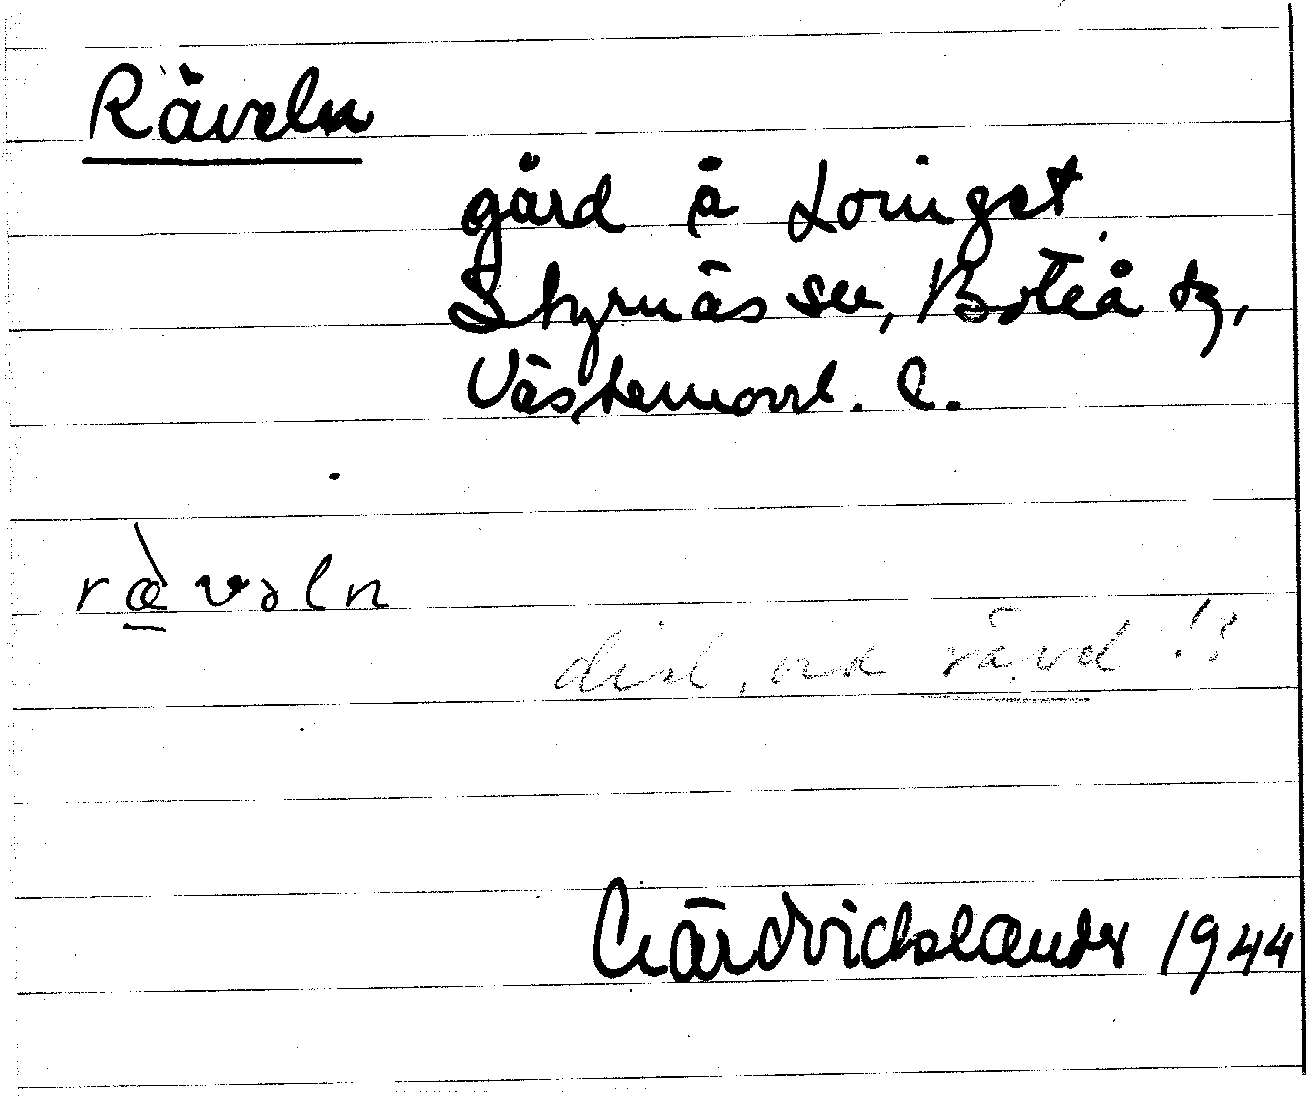 Räveln
gård å Loringet
Styrnäs sn, Boteå tg,
Västernorrl. l.
ræ̀vəln
dial, ord rävel !?
Gärdvidslander 1944